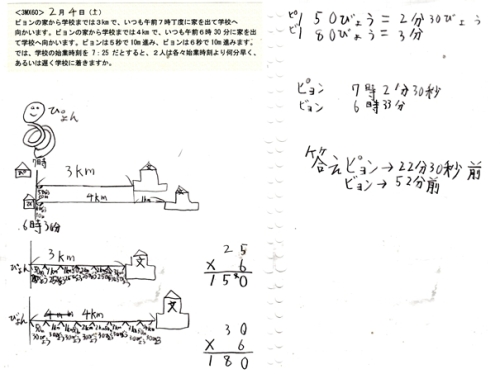 <3MX60> 2月4日(土)
ピョンの家から学校までは3kmで、いつも午前7時丁度に家を出て学校へ
向かいます。ビョンの家から学校までは4kmで、いつも午前6時30分に家を出
て学校へ向かいます。ピョンは5秒で10m進み、ビョンは6秒で10m進みます。
では、学校の始業時刻を7:25だとすると、2人は各々始業時刻より何分早く、
あるいは遅く学校に着きますか。
ぴょん
7時
3km
4km
1km
6時30分
ぴょん
3km
文
25
× 6
150
びょん
4km
4km
文
30
× 6
180
ピ 150びょう=2分30びょう
ビ 180びょう=3分
ピョン 7時2分30秒
ビョン 6時33分
答えピョン→22分30秒前
ビョン→52分前